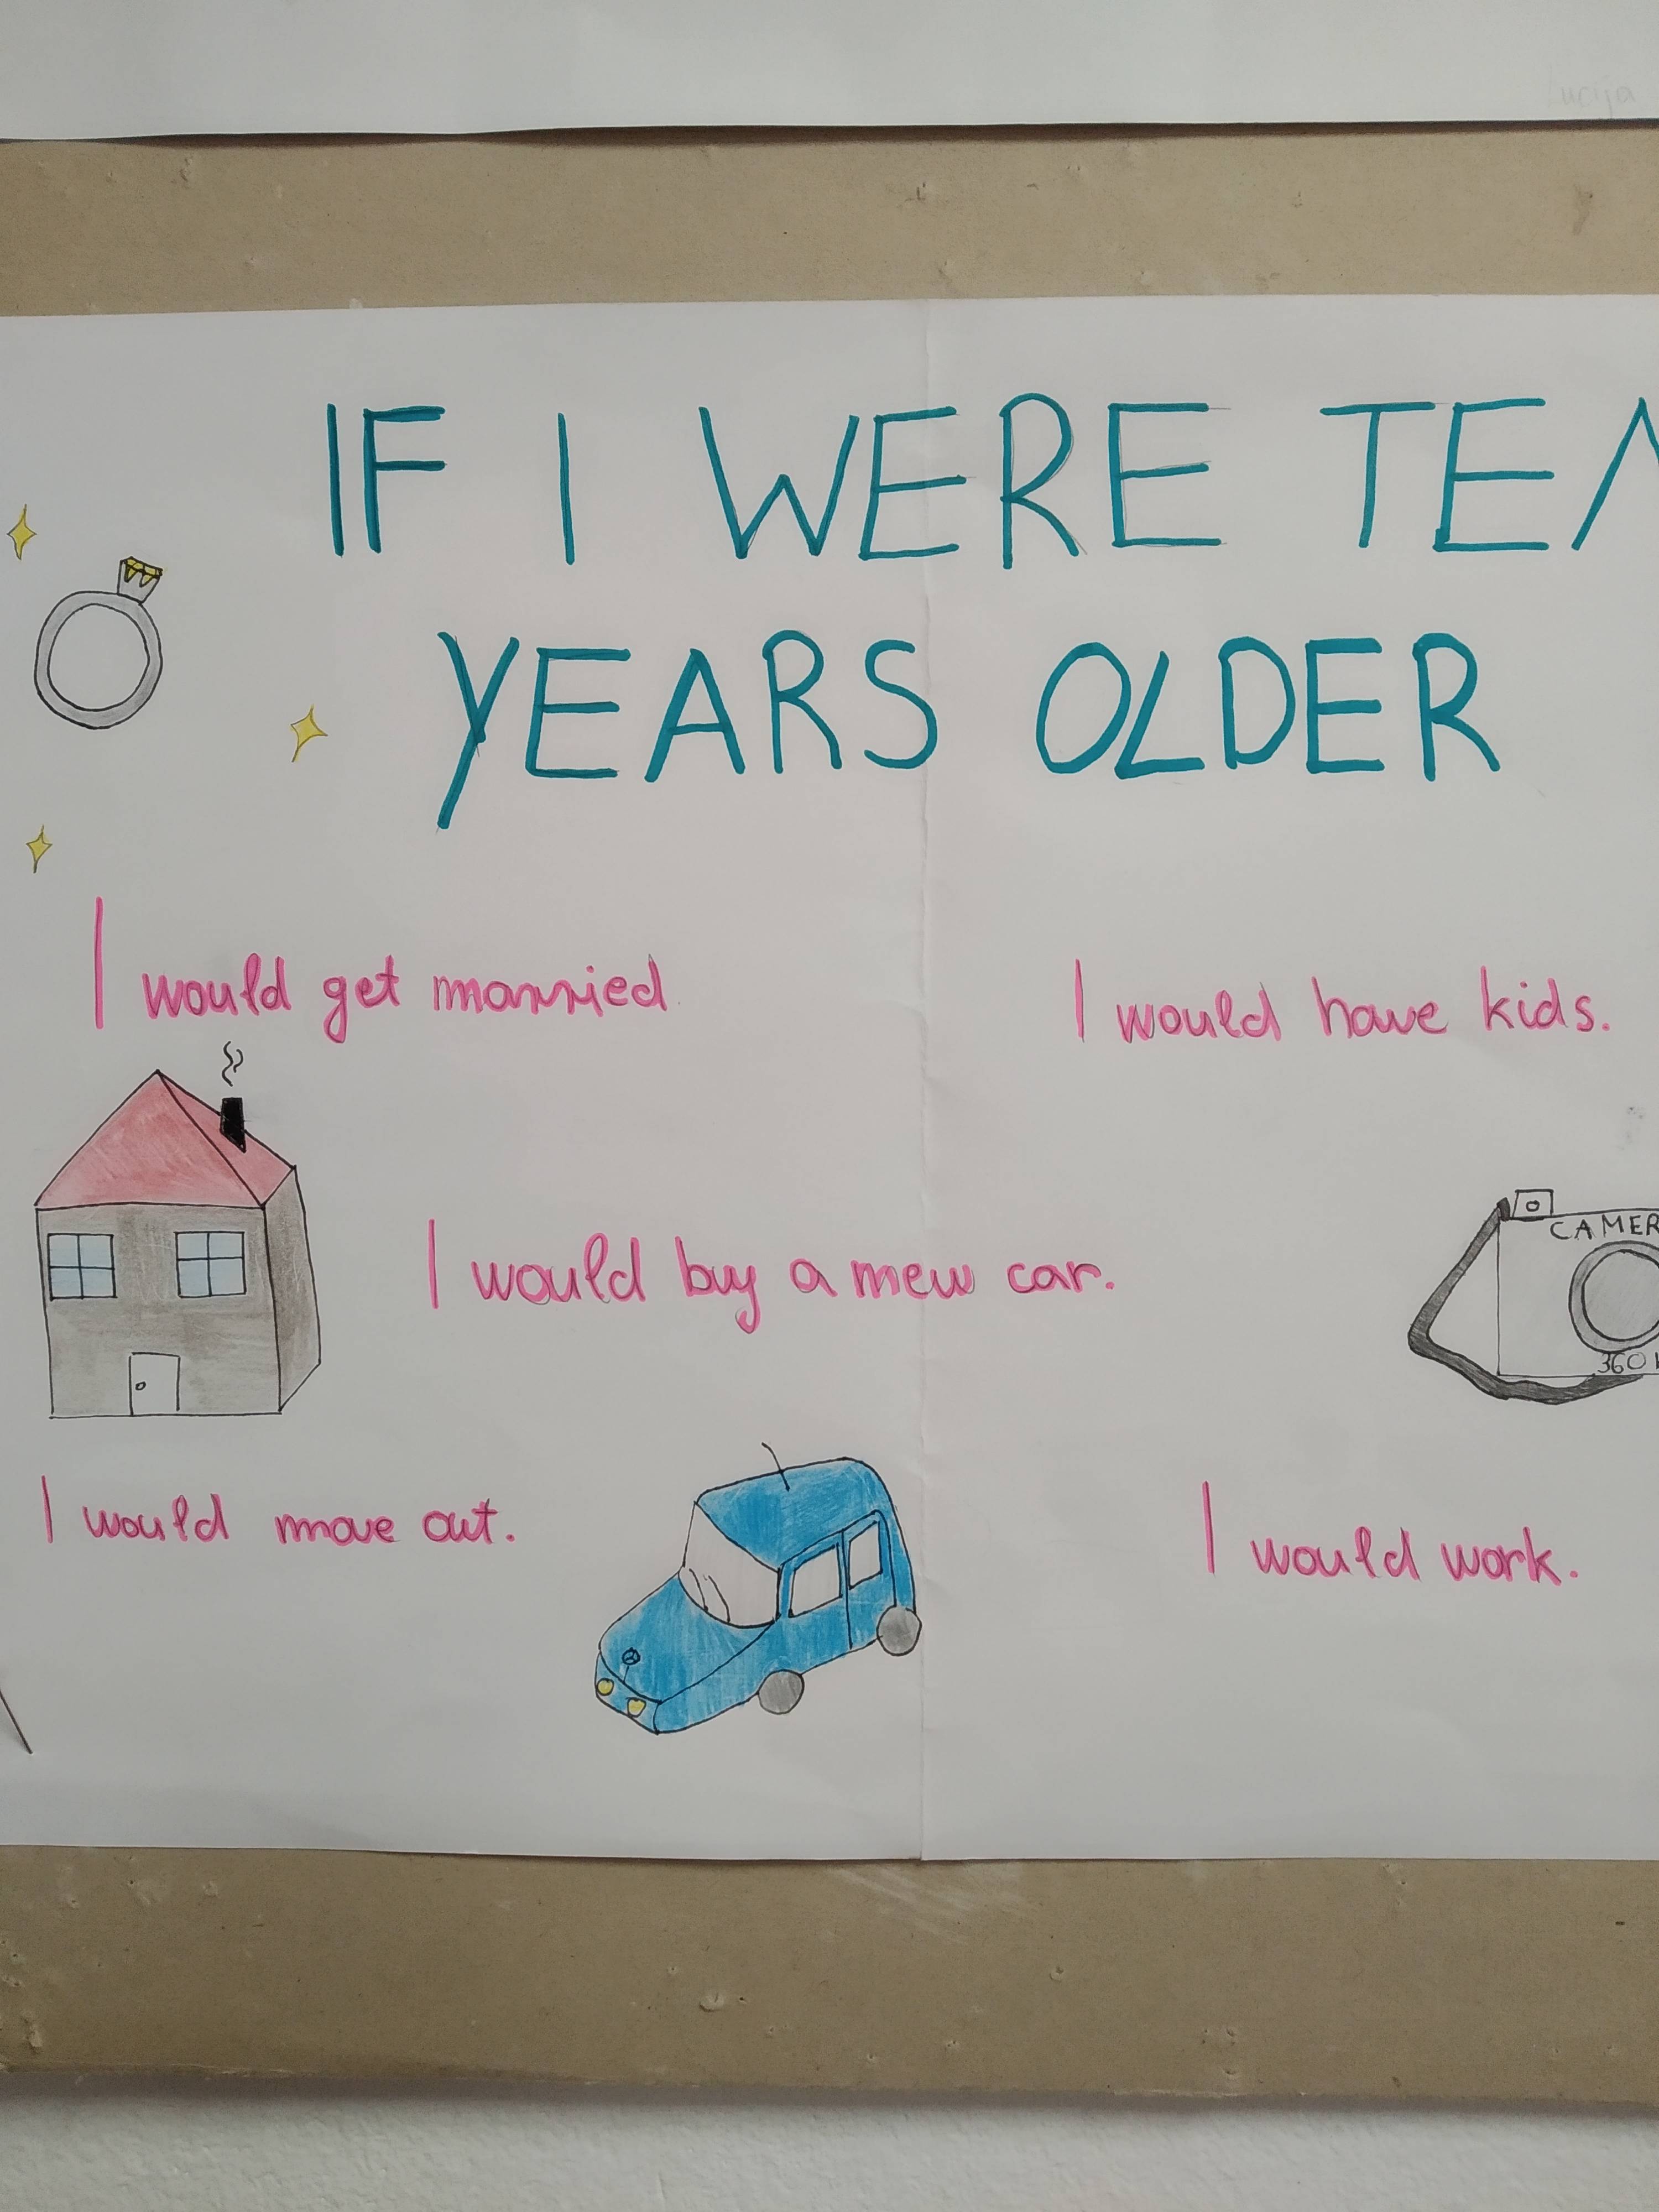 Lucija
IF I WERE TEN
YEARS OLDER
I would get married.
I would have kids.
CAMER
360
I would buy a new car.
I would move out.
I would work.